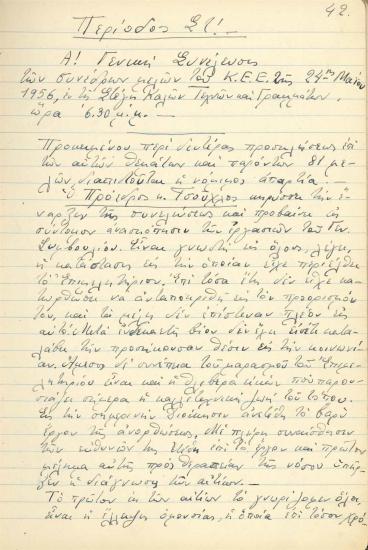 42.
Περίοδος Στ!
Α! Γενική Συνέλευσις
των συνέδρων μελών του Κ.Ε.Ε. της 24ης Μαΐου
1956, εν τη Στέγη Καλών Τεχνών και Γραμμάτων,
ώρα 6.30 μ.μ. —
Προκειμένου περί δευτέρας προσκλήσεως επί
των αυτών θεμάτων και παρόντων 81 με-
λών, διαπιστούται η νόμιμος απαρτία. —
Ο Πρόεδρος κ. Τσούχλος κηρύσσει την έ-
ναρξιν της συνεχίσεως και προβαίνει εις
σύντομον ανασκόπησιν των εργασιών του Γεν.
Συμβουλίου. Είναι γνωστή εις όλους, λέγει,
η κατάστασις εις την οποίαν είχε περιέλθει
το Επιμελητήριον. Επί τόσα έτη δεν είχε κα-
τορθώσει να ανταποκριθή εις τον προορισμόν
του, και τα μέλη δεν επίστευαν πλέον εις
αυτό. Μετά βίον δεν έχει εισέτι κατα-
λάβει την προσήκουσαν θέσιν εις την κοινωνί-
αν. Άμεσος δε συνέπεια του μαρασμού του Επιμε-
λητηρίου είναι και η θλιβερά εικών που παρου-
σιάζει σήμερα η καλλιτεχνική ζωή του τόπου.
Εις την σημερινήν διοίκησιν ανετέθη το βαρύ
έργον της ανορθώσεως. Με πλήρη συναίσθησιν
των ευθυνών της επί το έργον και πρώτον
μέλημα αυτής προς θεραπείαν της νόσου υπήρ-
ξεν η διάγνωσις των αιτίων. —
Το πρώτον εκ των αιτίων το γνωρίζομεν όλοι,
είναι η έλλειψις ομονοίας, η οποία επί τόσον χρό-